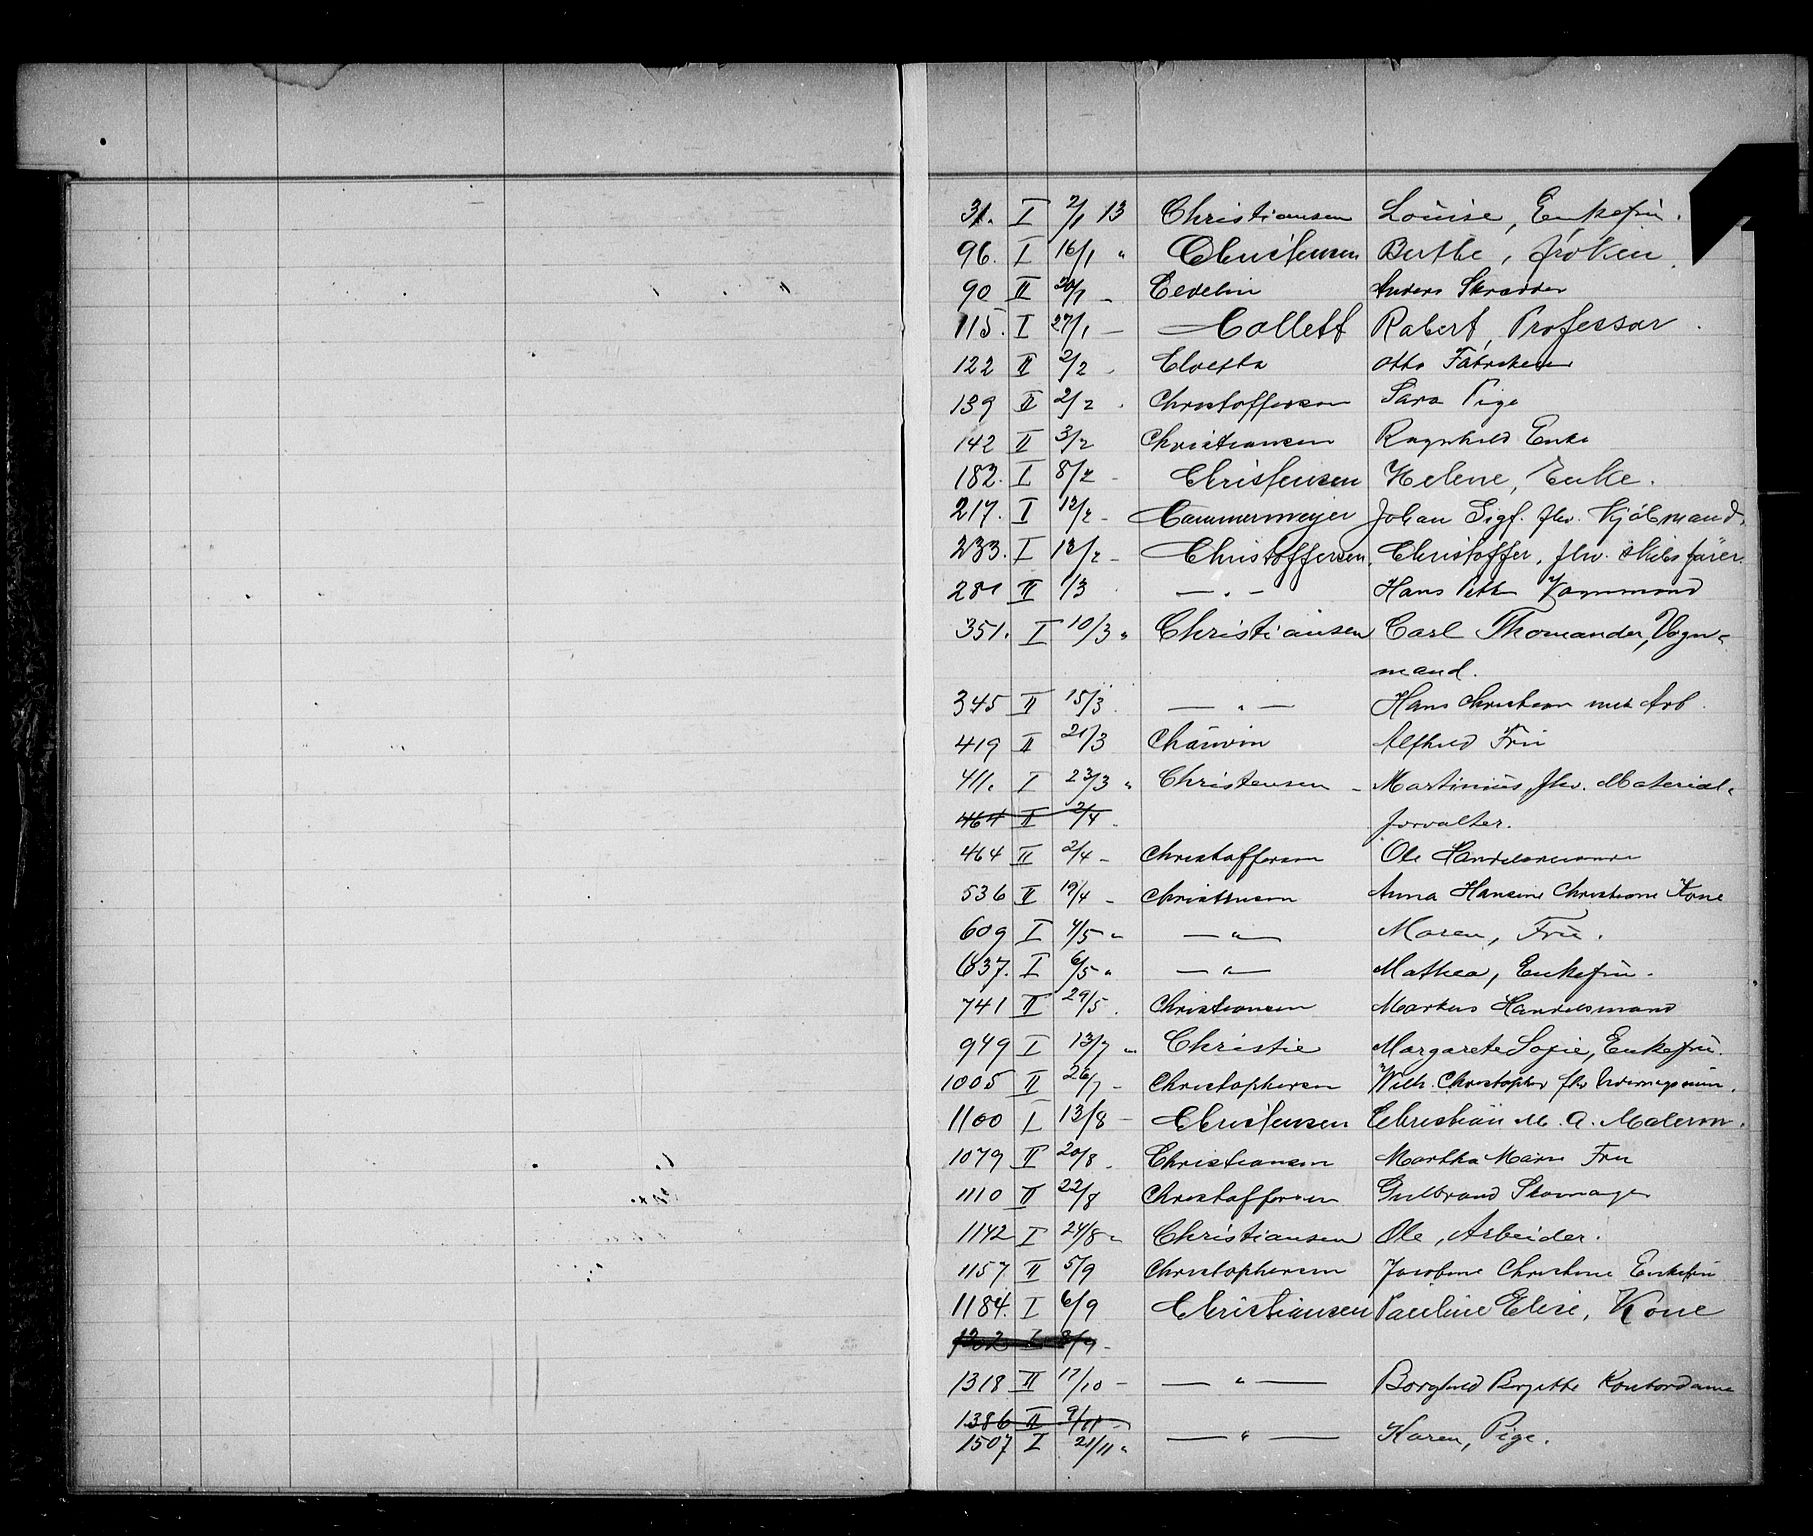 31. I 2/1 13 Christiansen Louise, Enkefru.
96. I 16/1 " Christensen Berthe, frøken
90 II 20/1 - Cedelin Anders Skrædder
115. I 27/1 — Collett Robert, Professor.
122 II 2/2 Otto
139 II 2/2 . Christoffersen Sara Pige
142 II 3/2 Christiansen Ragnhild Enke
182. I 8/2 - Christensen Helene, Enke.
217. I 12/2 - Cammermeyer Johan Sigf. fhv. Kjøbmand.
233. I 12/2 - Christoffersen, Christoffer, fhv. skibsfører.
281 II 1/3 — " — Hans Peter Vognmand
351. I 10/3 " Christiansen Carl Thomander, Vogn-
mand.
345 II 15/3. — " — Hans Christian Arb.
419 II 21/3 Chauvin Alfhild Fru
411. I 23/3 " Christensen - Martinius, fhv. Material-
464 II 2/4. forvalter.
464 II 2/4 - Christoffersen Ole Handelsmand
536 II 19/4 - Christensen Anna Hansine Christiane Kone
609 I 4/5 " — " — Maren, Fru.
637. I 6/5 " — " — Mathea, Enkefru.
741 II 29/5. Christiansen Markus Handelsmand
949 I 13/7 " Christie Margarete Sofie, Enkefru.
1005 II 26/7 - Christophersen Wilh. Christopher fhv
1100 I 13/8 - Christensen Christian M. A. Malerm.
1079 II 20/8. Christiansen Martha Marie Fru
1110 II 22/8 Christoffersen Gulbrand Skomager
1142 I 24/8 " Christiansen Ole, Arbeider.
1157 II 5/9 Christophersen Jacobine Christine Enkefru
1184. I 6/9 Christiansen Pauline Elise, Kone
1318 II 17/10 - — " — Borghild Birgitte Kontordame
1386 II 9/11 -
1507 I 21/11 " — " — Karen, Pige.